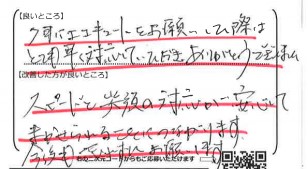 【良いところ】
夕にエコキュートをお願いした際は
とても早く対応していただきありがとうございました
【改善した方が良いところ】
スピードと笑顔の対応が安心して
まかせられることにつながります
今後もよろしくお願いします
右の二次元コードからもご応募いただけます